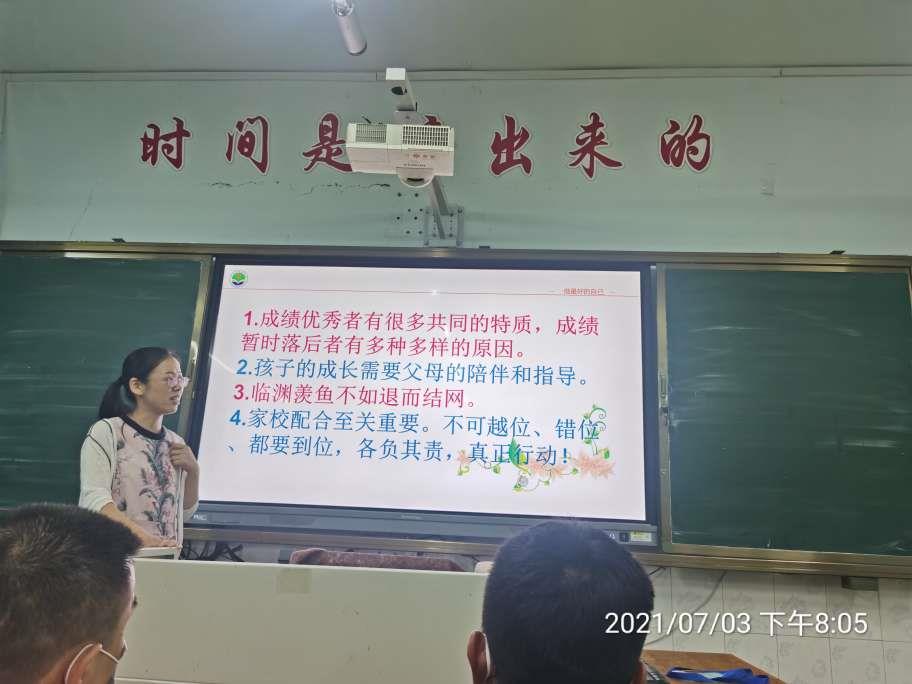 时间是 出来的
做最好的自己
1.成绩优秀者有很多共同的特质，成绩
暂时落后者有多种多样的原因。
2.孩子的成长需要父母的陪伴和指导。
3.临渊羡鱼不如退而结网。
4.家校配合至关重要。不可越位、错位
、都要到位，各负其责，真正行动！
2021/07/03 下午8:05